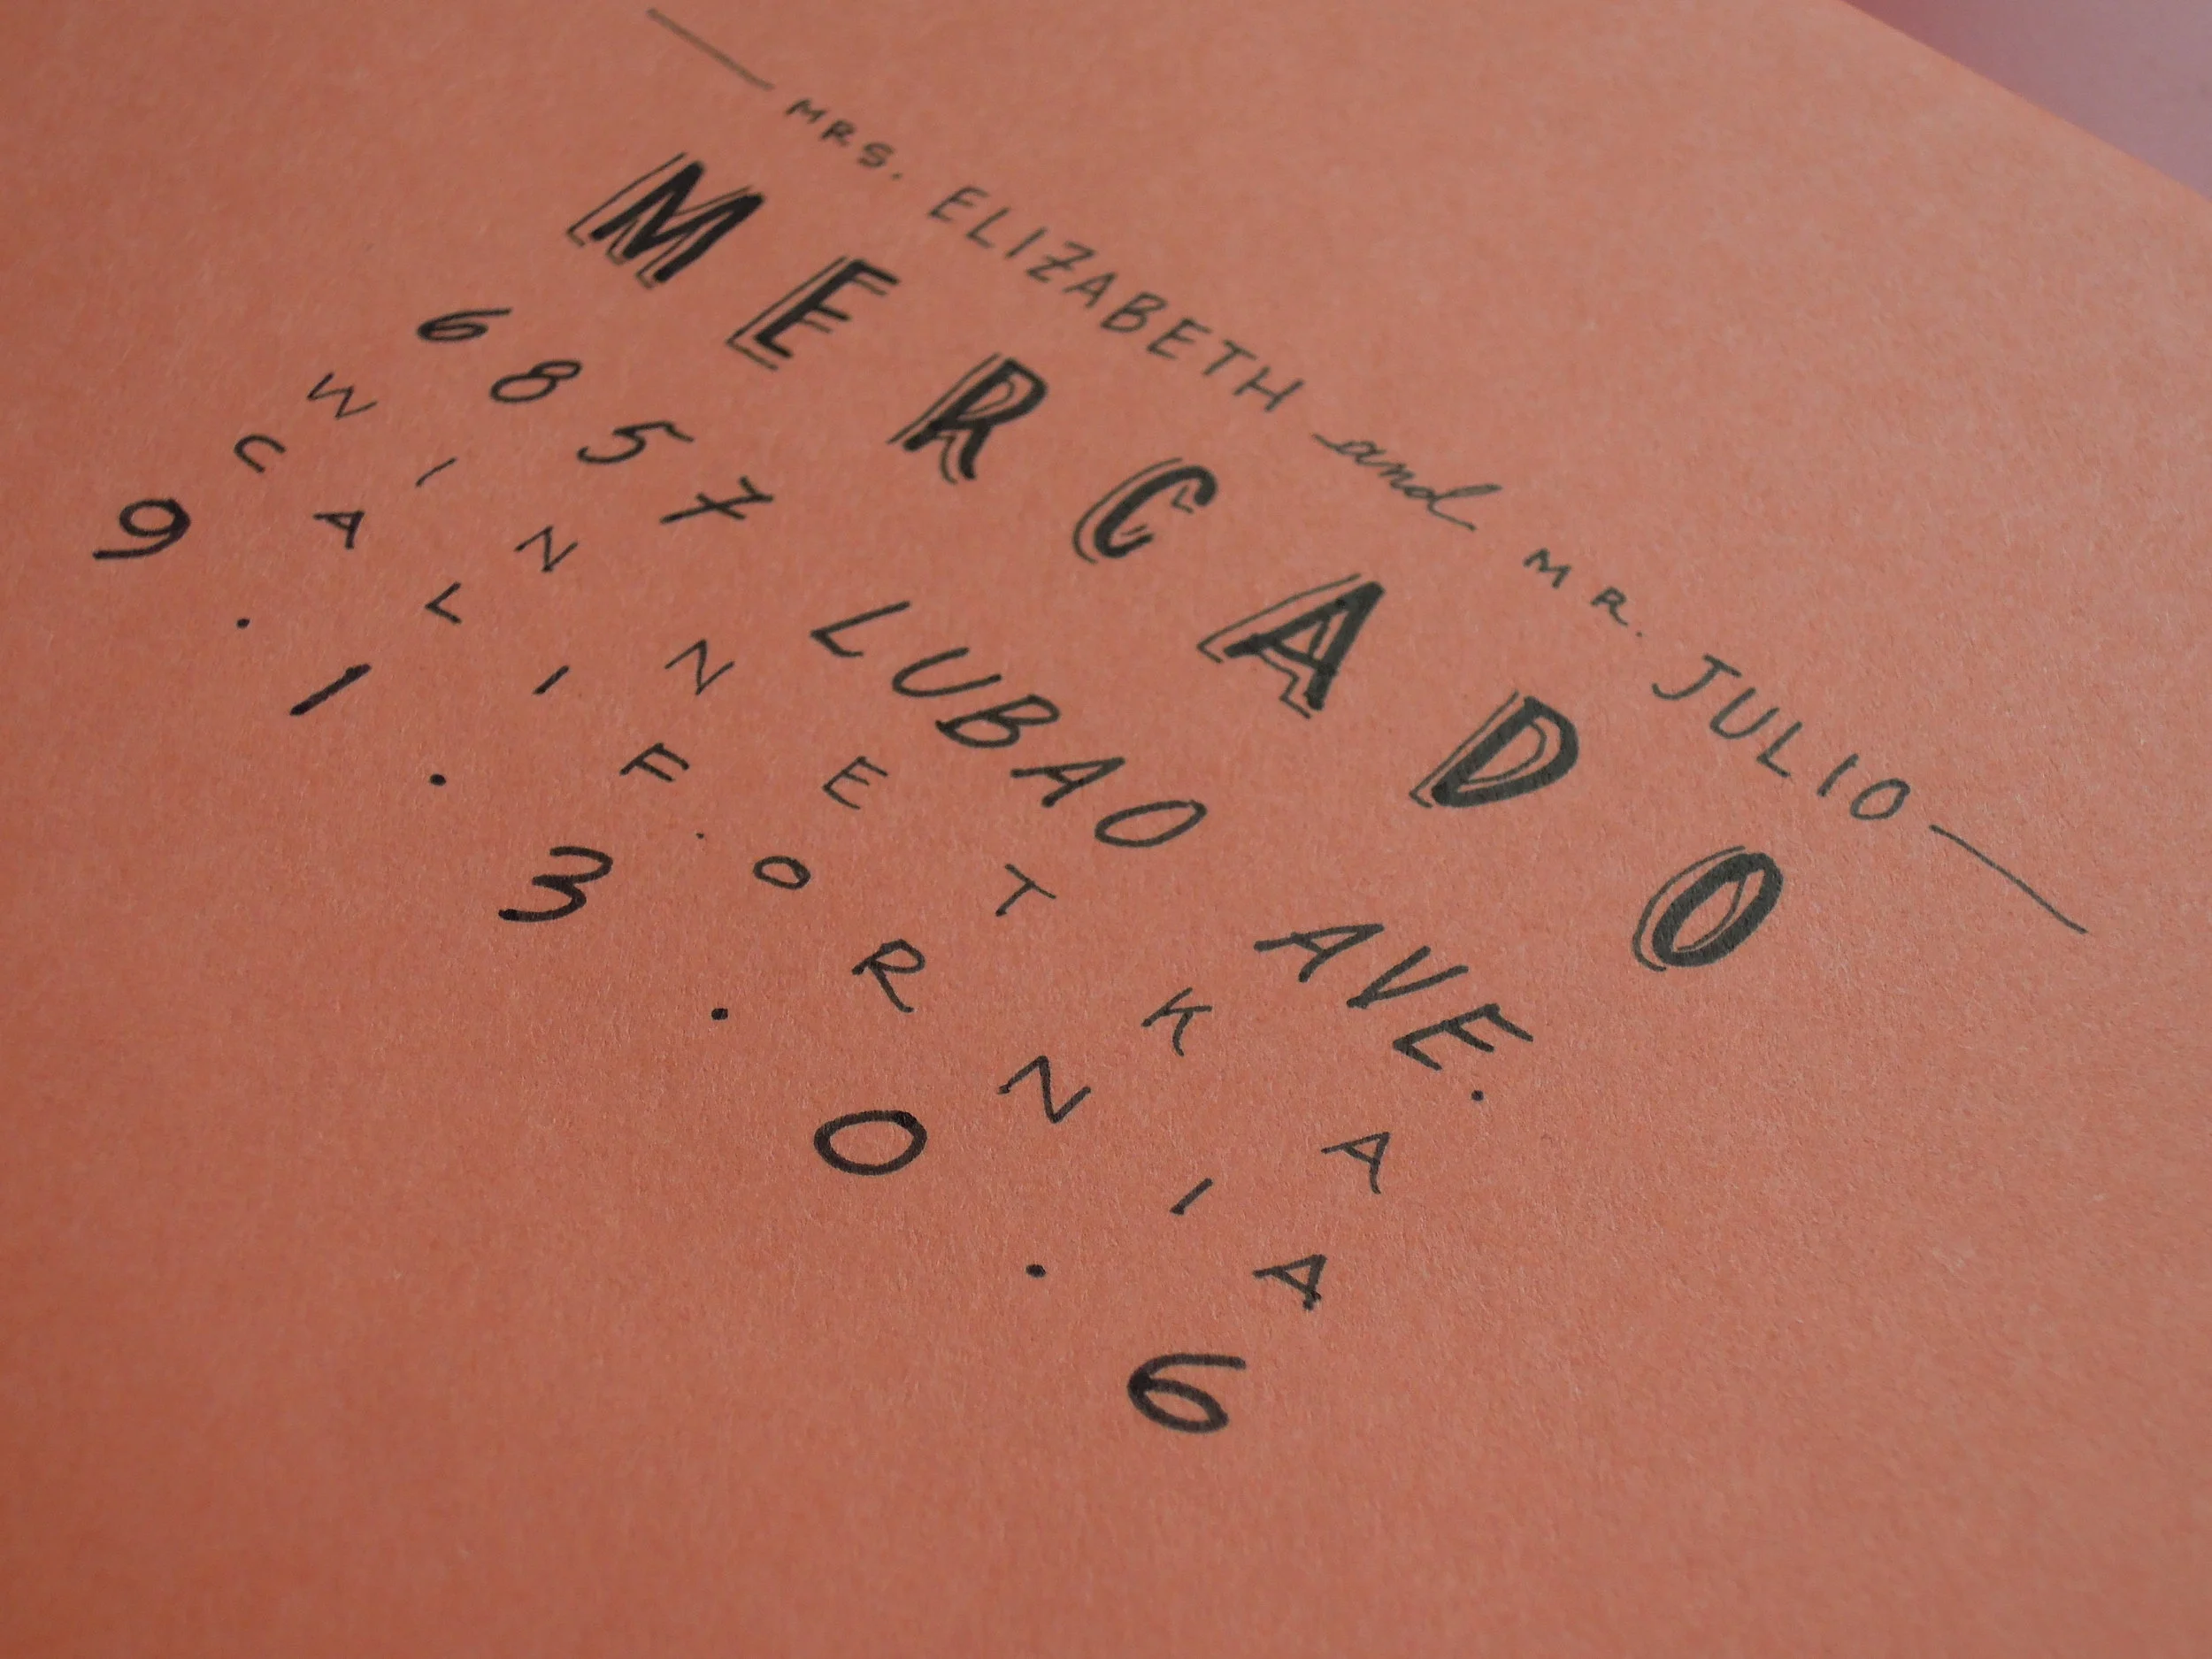 — MRS. ELIZABETH and MR. JULIO —
MERCADO
6857 LUBAO AVE.
WINNETKA
CALIFORNIA
9.1.3.0.6